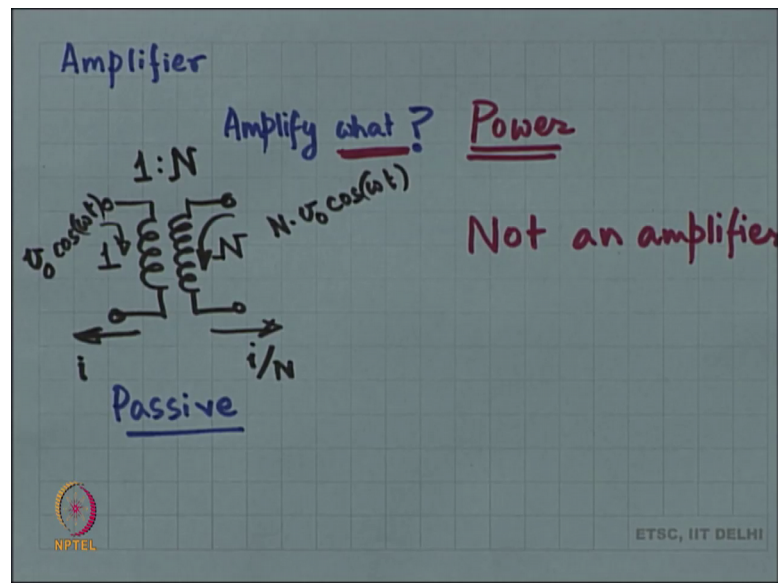 Amplifier
Amplify what? Power
1:N
v₀ cos(ωt)
1
N
N·v₀ cos(ωt)
Not an amplifier
i
i/N
Passive
NPTEL
ETSC, IIT DELHI